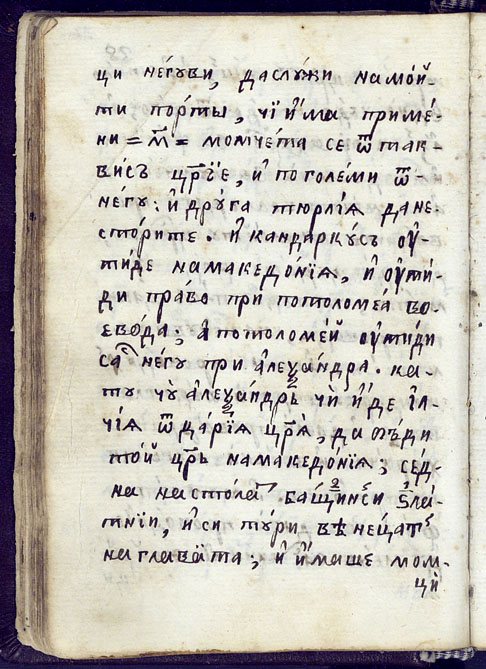 ци не́гꙋви, даслꙋ́жи намо́й-
ти по́рты, чи и́ма приме́-
ни = м҃ = момче́та се ѿ так-
ви́съ цр҃їе, и҆ поголе́ми ѿ-
не́гꙋ: и҆ дрꙋ́га тюрлі́ѧ дане
сто́рите. и҆ кандаркꙋ́съ ѹ҆-
ти́де намакедо́нїѧ, и҆ ѹ҆ти́-
ди пра́во при потоломе́а во-
ево́да; а҆ потоломе́й ѹ҆ти́ди
са не́гꙋ при а҆леѯа́ндра. ка-
тꙋ чꙋ̀ а҆леѯа́ндръ чѝ и҆́де і҆л-
чі́ѧ ѿ да́рїѧ цр҃ѧ̀, да ѿѣди
то́й цр҃ь намакедо́нїѧ; се́д-
на настола̀ ба́щинси ѕла-
тнїи, и҆си тꙋ́ри вѣнеца́т
наглава̀та; и҆ и҆́маше мом-
цѝ